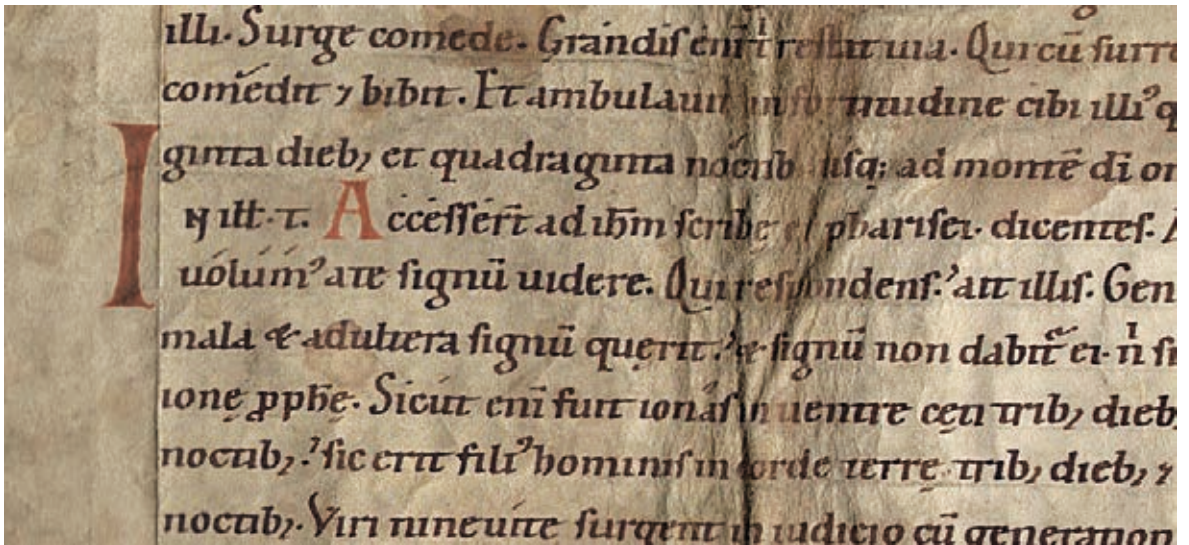 illi. Surge comede. Grandis enī t̄ restat uia. Qui cū surre
comedit ⁊ bibit. Et ambulauit in fortitudine cibi illiꝰ q
ginta dieb; et quadraginta noctib usq; ad montē dī or
IN ill̄. t̄. Accesser̄t ad ih̄m scribe et pharisei. dicentes.
uolumꝰ a te signū uidere. Qui respondens. ait illis. Gen
mala & adultera signū querit. & signū non dabit̄ ei. n̄ si
ione ꝓph̄ę. Sicut enī fuit ionas in uentre cęti trib; dieb
noctib;. sic erit filiꝰ hominis in corde terrę trib; dieb; ⁊
noctib;. Viri nineuite surgent in iudicio cū generation